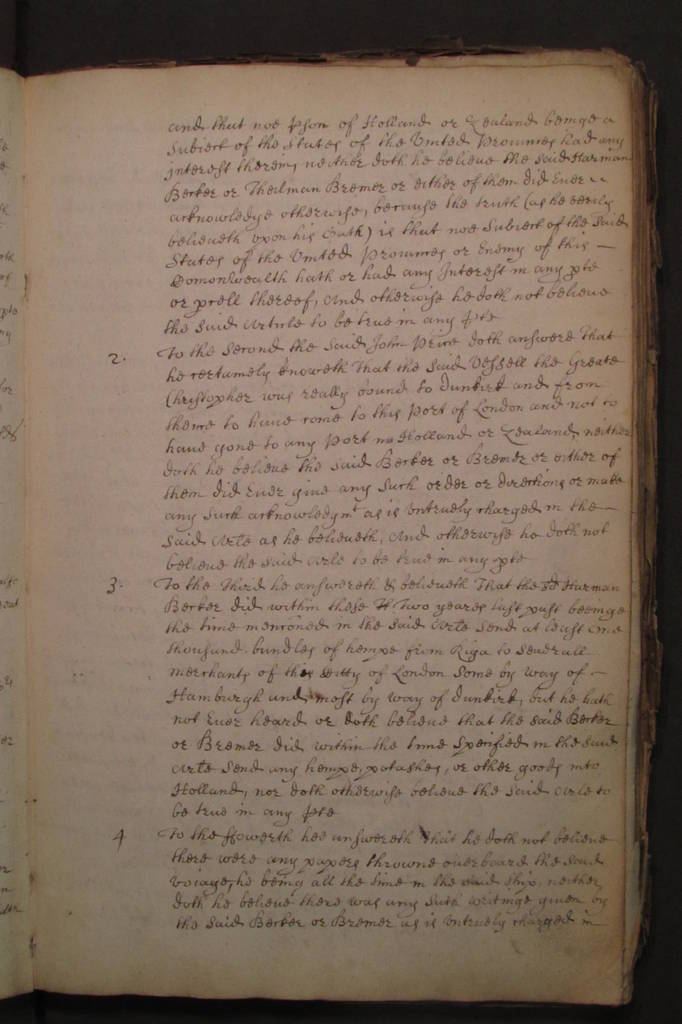 and that noe pson of Holland or Zealand beinge a
Subiect of the States of the Vnited Provinces had any
interest therein, neither doth he believe the said Harman
Berker or Theilman Bremer or either of them did Ever
acknowledge otherwise, because the truth (as he verily
believeth vpon his Oath) is that noe Subiect of the said
States of the Vnited Provinces or Enemy of this
Comonwealth hath or had any Interest in any pte
or prcell thereof, And otherwise he doth not believe
the said Article to be true in any pte
2. To the Second the said John Price doth answere That
he certainely knoweth That the said Vessell the Greate
Christopher was really bound to Dunkirk and from
thence to have come to this Port of London and not to
have gone to any Port in Holland or Zealand, neither
doth he believe the said Berker or Bremer or either of
them did Ever give any such order or directions or make
any such acknowledgmt as is vntruely charged in the
said Arle as he believeth, And otherwise he doth not
believe the said Arle to be true in any pte
3. To the Third he answereth & believeth That the sd Harman
Berker did within these Two yeares last past beeinge
the time menconed in the said Arle send at least One
thousand bundles of hempe from Riga to severall
merchants of this Citty of London some by way of
Hamburgh and most by way of Dunkirk, but he hath
not Ever heard or doth believe that the said Berker
or Bremer did within the time specified in the said
Arle send any hempe, potashes, or other goods into
Holland, nor doth otherwise believe the said Arle to
be true in any pte
4 To the ffowerth hee answereth That he doth not believe
there were any papers throwne overboard the said
voiage, he being all the time in the said ship, neither
doth he believe there was any such writinge given by
the said Berker or Bremer as is vntruely charged in